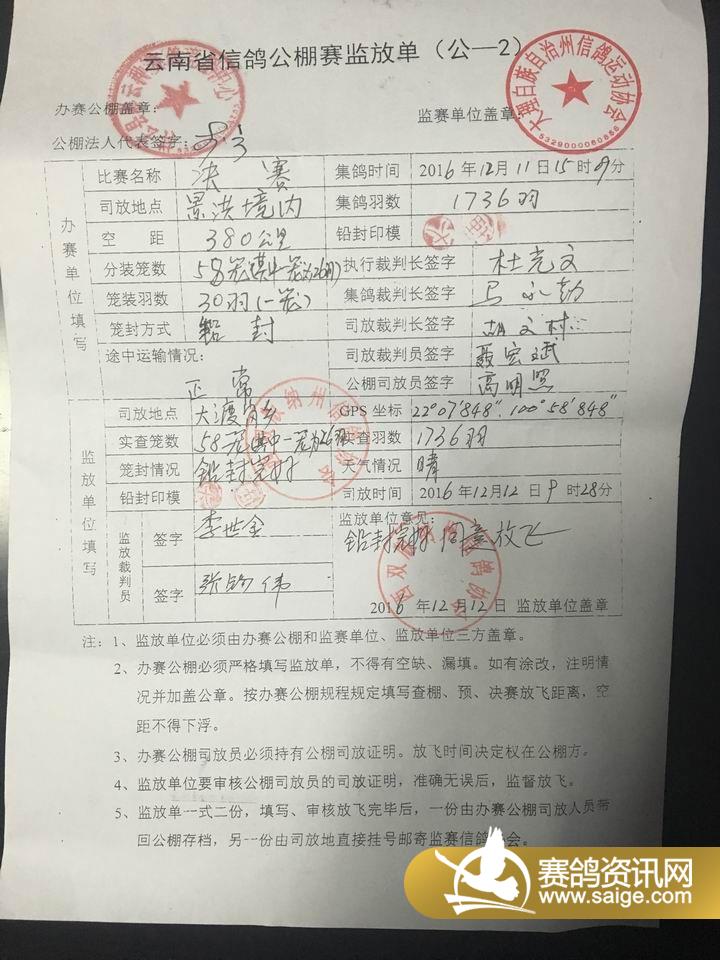 云南省信鸽公棚赛监放单（公—2）
办赛公棚盖章：
监赛单位盖章：
大理白族自治州信鸽运动协会
5329000060856
公棚法人代表签字：
办赛单位填写
比赛名称 决赛 集鸽时间 2016年12月11日15时09分
司放地点 景洪境内 集鸽羽数 1736羽
空距 380公里 铅封印模
分装笼数 58笼(其中一笼为26羽) 执行裁判长签字 杜克文
笼装羽数 30羽(一笼) 集鸽裁判长签字
笼封方式 铅封 司放裁判长签字 胡文林
途中运输情况： 正常 司放裁判员签字 聂宏斌
公棚司放员签字 高明照
监放单位填写
司放地点 大渡岗乡 GPS 坐标 22°07′848″, 100°58′848″
实查笼数 58笼 其中一笼为26羽 实查羽数 1736羽
笼封情况 铅封完好 天气情况 晴
铅封印模 司放时间 2016年12月12日9时28分
监放裁判员
签字 李世金 监放单位意见：
铅封完好 同意放飞
签字
2016年12月12日 监放单位盖章
注：1、监放单位必须由办赛公棚和监赛单位、监放单位三方盖章。
2、办赛公棚必须严格填写监放单，不得有空缺、漏填。如有涂改，注明情
况并加盖公章。按办赛公棚规程规定填写查棚、预、决赛放飞距离，空
距不得下浮。
3、办赛公棚司放员必须持有公棚司放证明。放飞时间决定权在公棚方。
4、监放单位要审核公棚司放员的司放证明，准确无误后，监督放飞。
5、监放单一式二份，填写、审核放飞完毕后，一份由办赛公棚司放人员带
回公棚存档，另一份由司放地直接挂号邮寄监赛信鸽协会。
赛鸽资讯网
www.saige.com